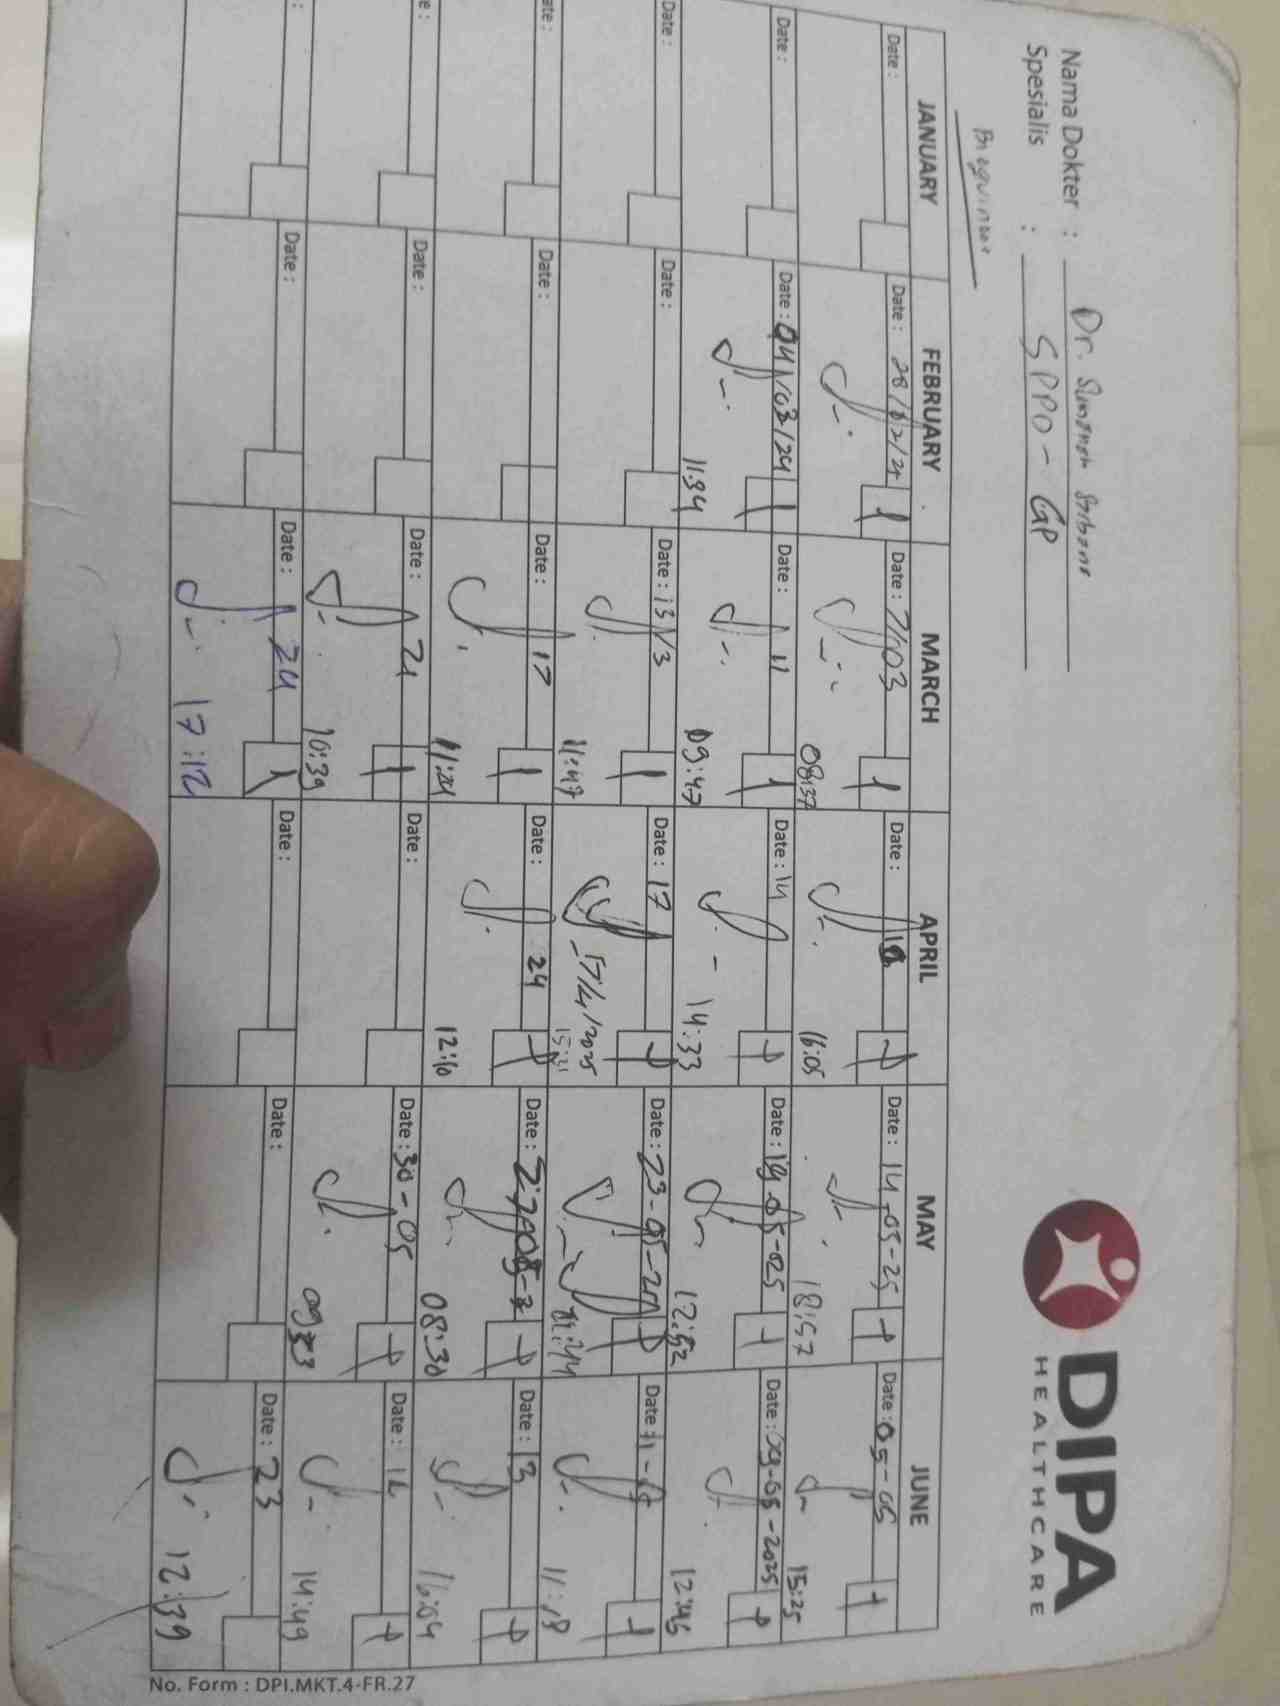 DIPA
HEALTHCARE
Nama Dokter : Dr.
Spesialis : SPPO - GP
JANUARY FEBRUARY MARCH APRIL MAY JUNE
Date : Date : 28/02/24 1 Date : 7/03 1 Date : Date : 14-05-25 Date : 05-05
08:37 16:05 18:57 15:25
Date : Date : 04/03/24 1 Date : 11 1 Date : 14 Date : 19-05-25 Date : 09-05-2025
11:34 09:47 14:33 12:52 12:45
Date : Date : Date : 13/3 1 Date : 17 Date : 23-05-
11:47 17/4/2025 15:21 11:18
Date : Date : Date : 17 1 Date : 24 Date : Date : 13
11:24 12:10 08:30 16:04
Date : Date : Date : 21 1 Date : Date : 30-05 Date :
10:39 09:33 14:49
Date : Date : Date : 24 1 Date : Date : Date : 23
17:12 12:39
No. Form : DPI.MKT.4-FR.27